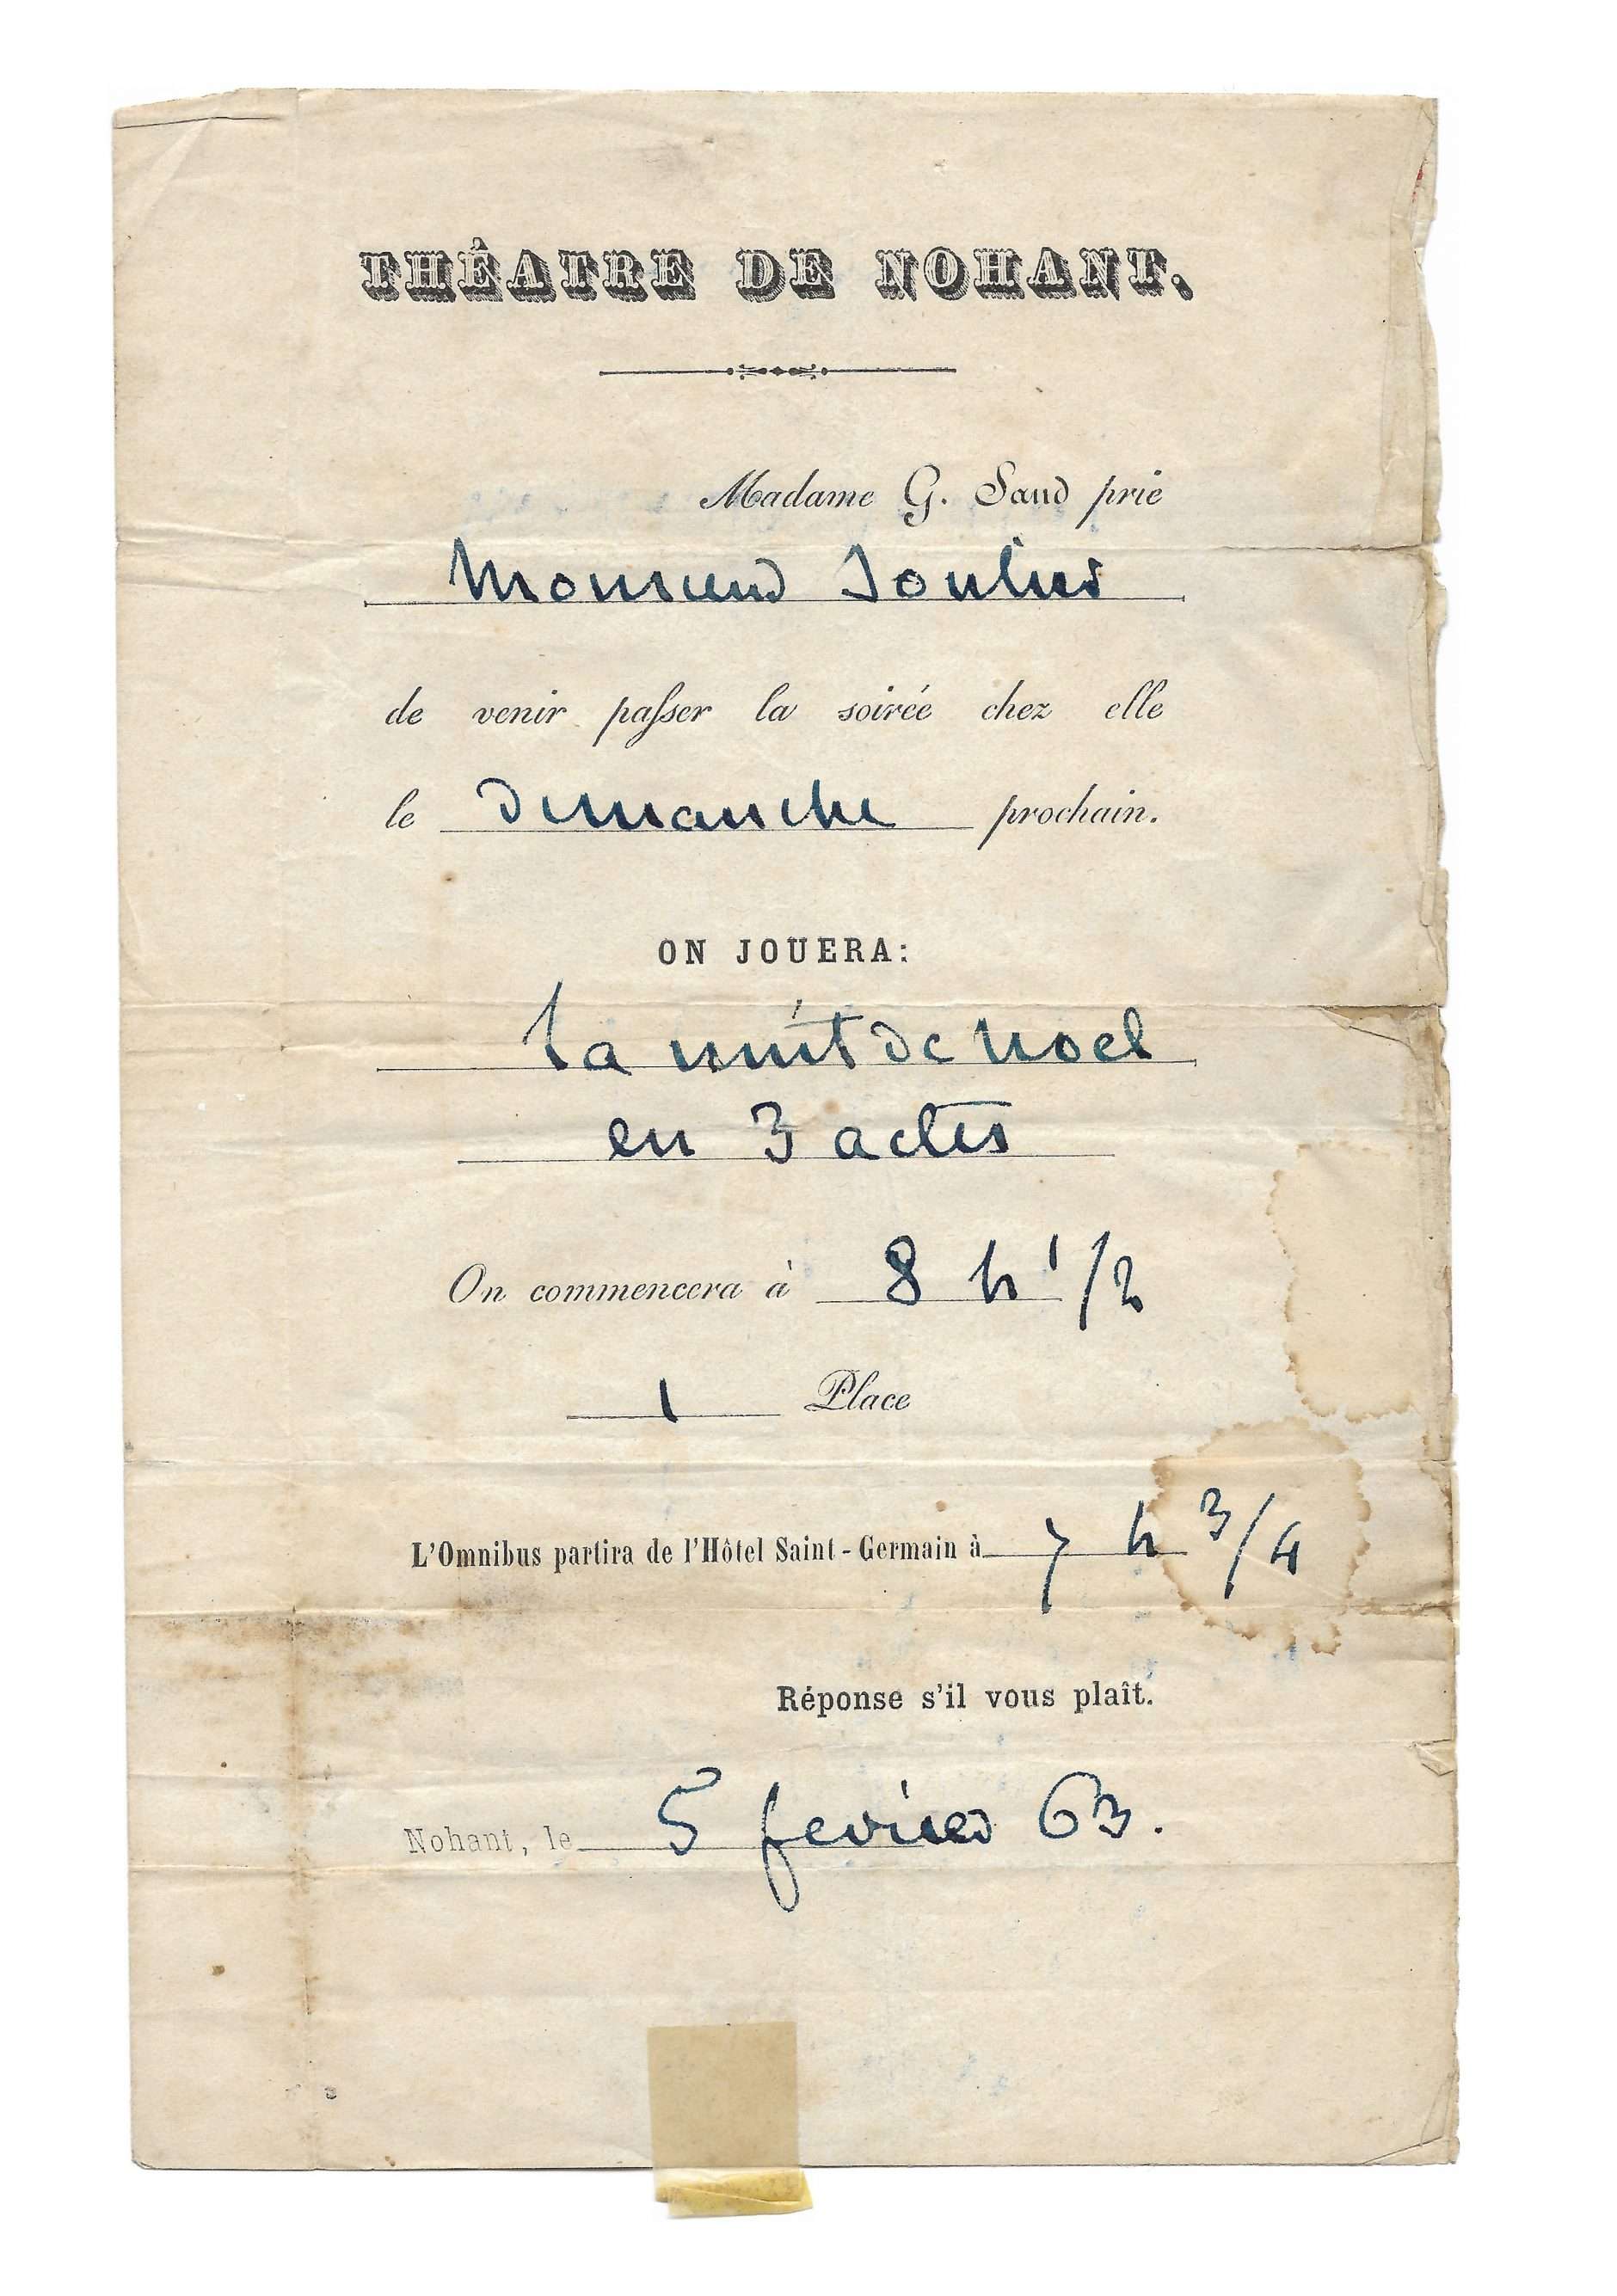 THÉATRE DE NOHANT.
Madame G. Sand prie
Monsieur
de venir paſser la soirée chez elle
le dimanche prochain.
ON JOUERA:
la nuit de noel
en 3 actes
On commencera à 8 h 1/2
1 Place
L'Omnibus partira de l'Hôtel Saint-Germain à 7 h 3/4
Réponse s'il vous plaît.
Nohant, le 5 fevrier 63.